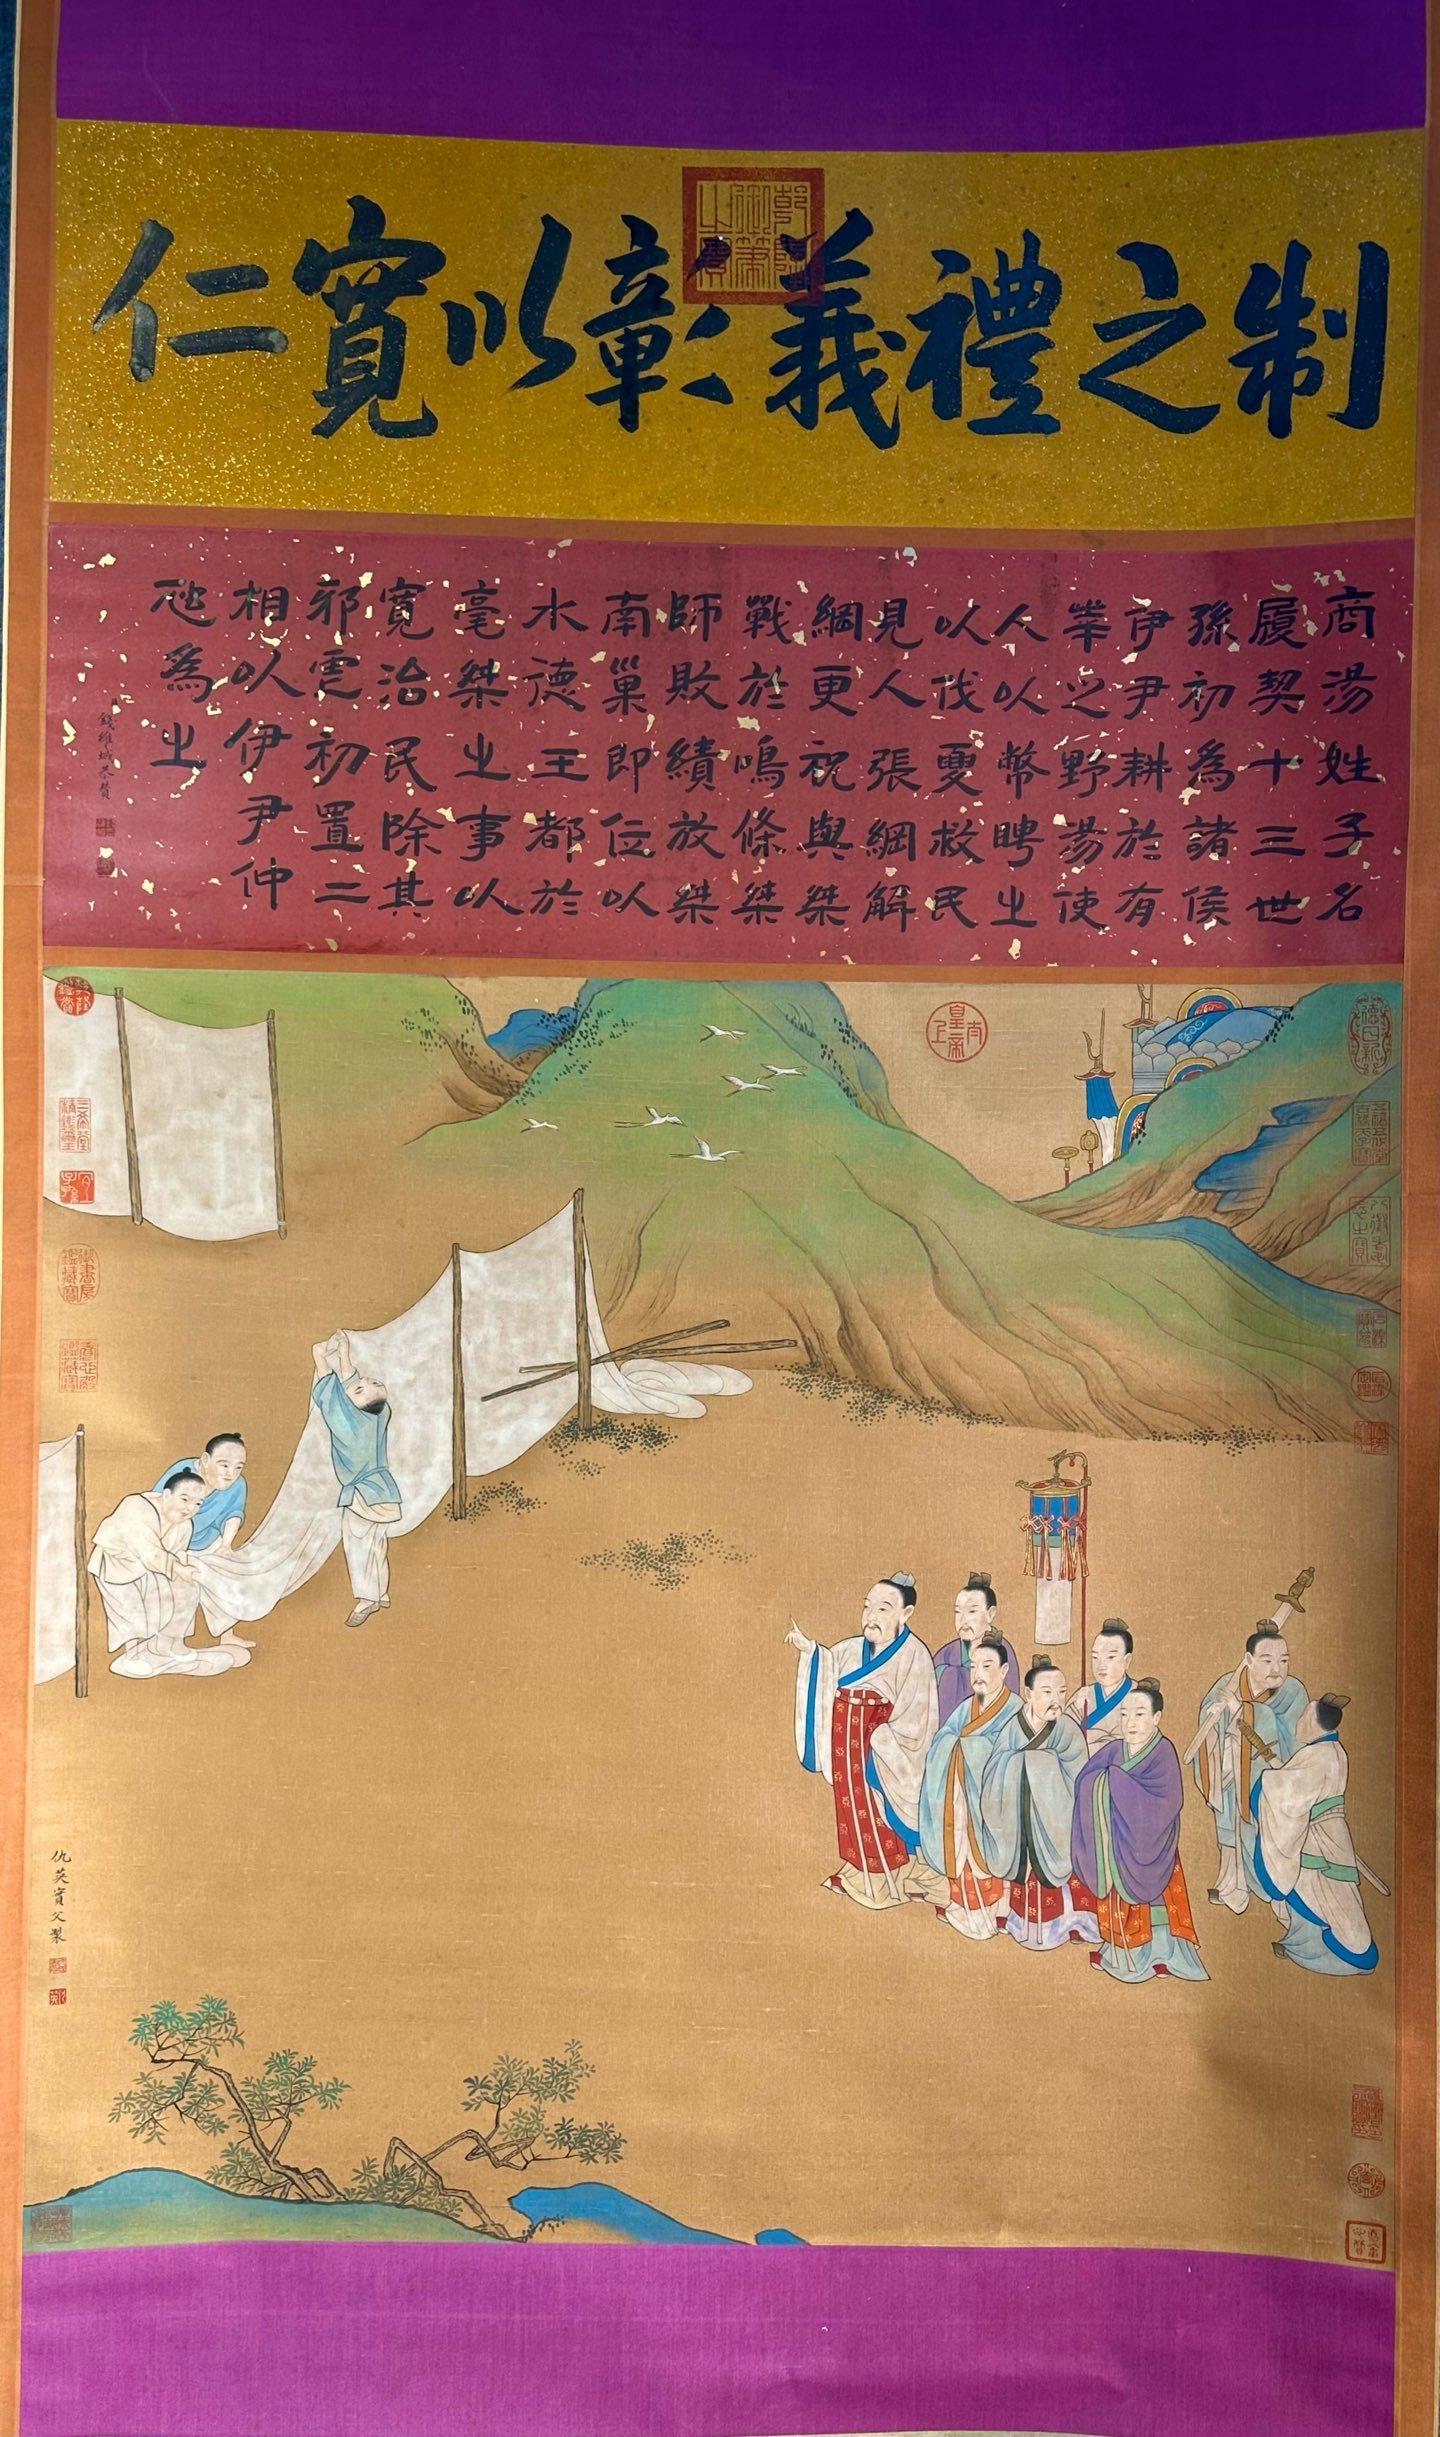 制之禮義彰以寬仁
乾隆御筆之寶
商湯姓子名
履契十三世
孫初為諸侯
伊尹耕於有
莘之野湯使
人以幣聘之
以伐夏救民
見人張網解
網更祝與桀
戰於鳴條桀
師敗績放桀
南巢即位以
水德王都於
亳桀之事以
寬治民除其
邪虐初置二
相以伊尹仲
虺為之
錢維城恭贊
仇英實父製